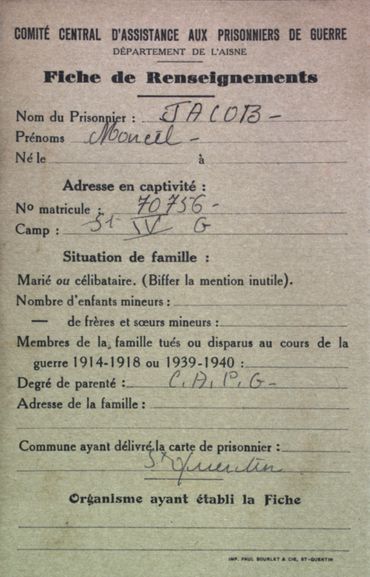 COMITÉ CENTRAL D'ASSISTANCE AUX PRISONNIERS DE GUERRE
DÉPARTEMENT DE L'AISNE
Fiche de Renseignements
Nom du Prisonnier : JACOB -
Prénoms Marcel -
Né le à
Adresse en captivité :
No matricule : 70756 -
Camp : St IV G
Situation de famille :
Marié ou célibataire. (Biffer la mention inutile).
Nombre d'enfants mineurs :
— de frères et sœurs mineurs :
Membres de la famille tués ou disparus au cours de la
guerre 1914-1918 ou 1939-1940 :
Degré de parenté : C.A.P.G -
Adresse de la famille :
Commune ayant délivré la carte de prisonnier :
St Quentin
Organisme ayant établi la Fiche
IMP. PAUL BOURLET & CIE, ST-QUENTIN